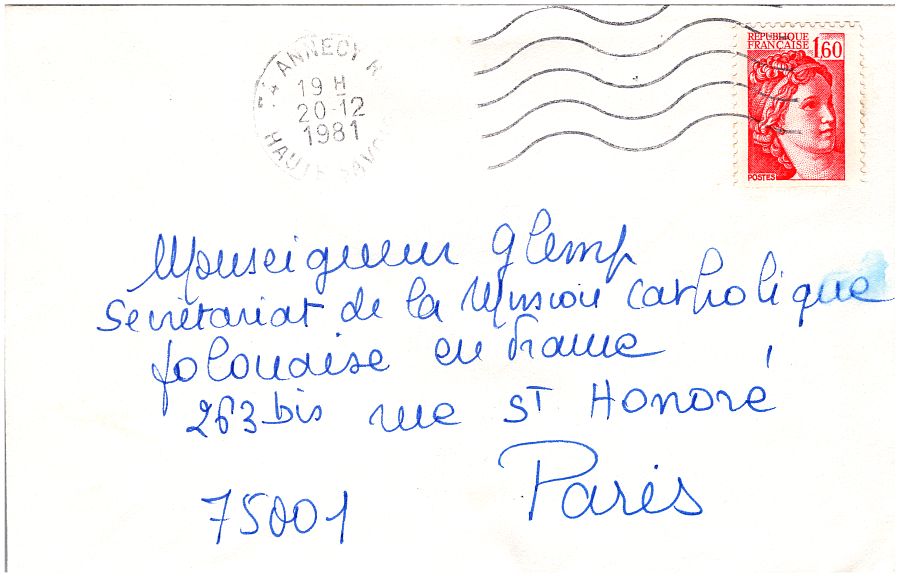 ANNECY
19 H
20-12
1981
HAUTE SAVOIE
RÉPUBLIQUE
FRANÇAISE 1,60
POSTES
Monseigneur Glemp
Secrétariat de la Mission catholique
polonaise en France
263 bis rue ST Honoré
75001 Paris